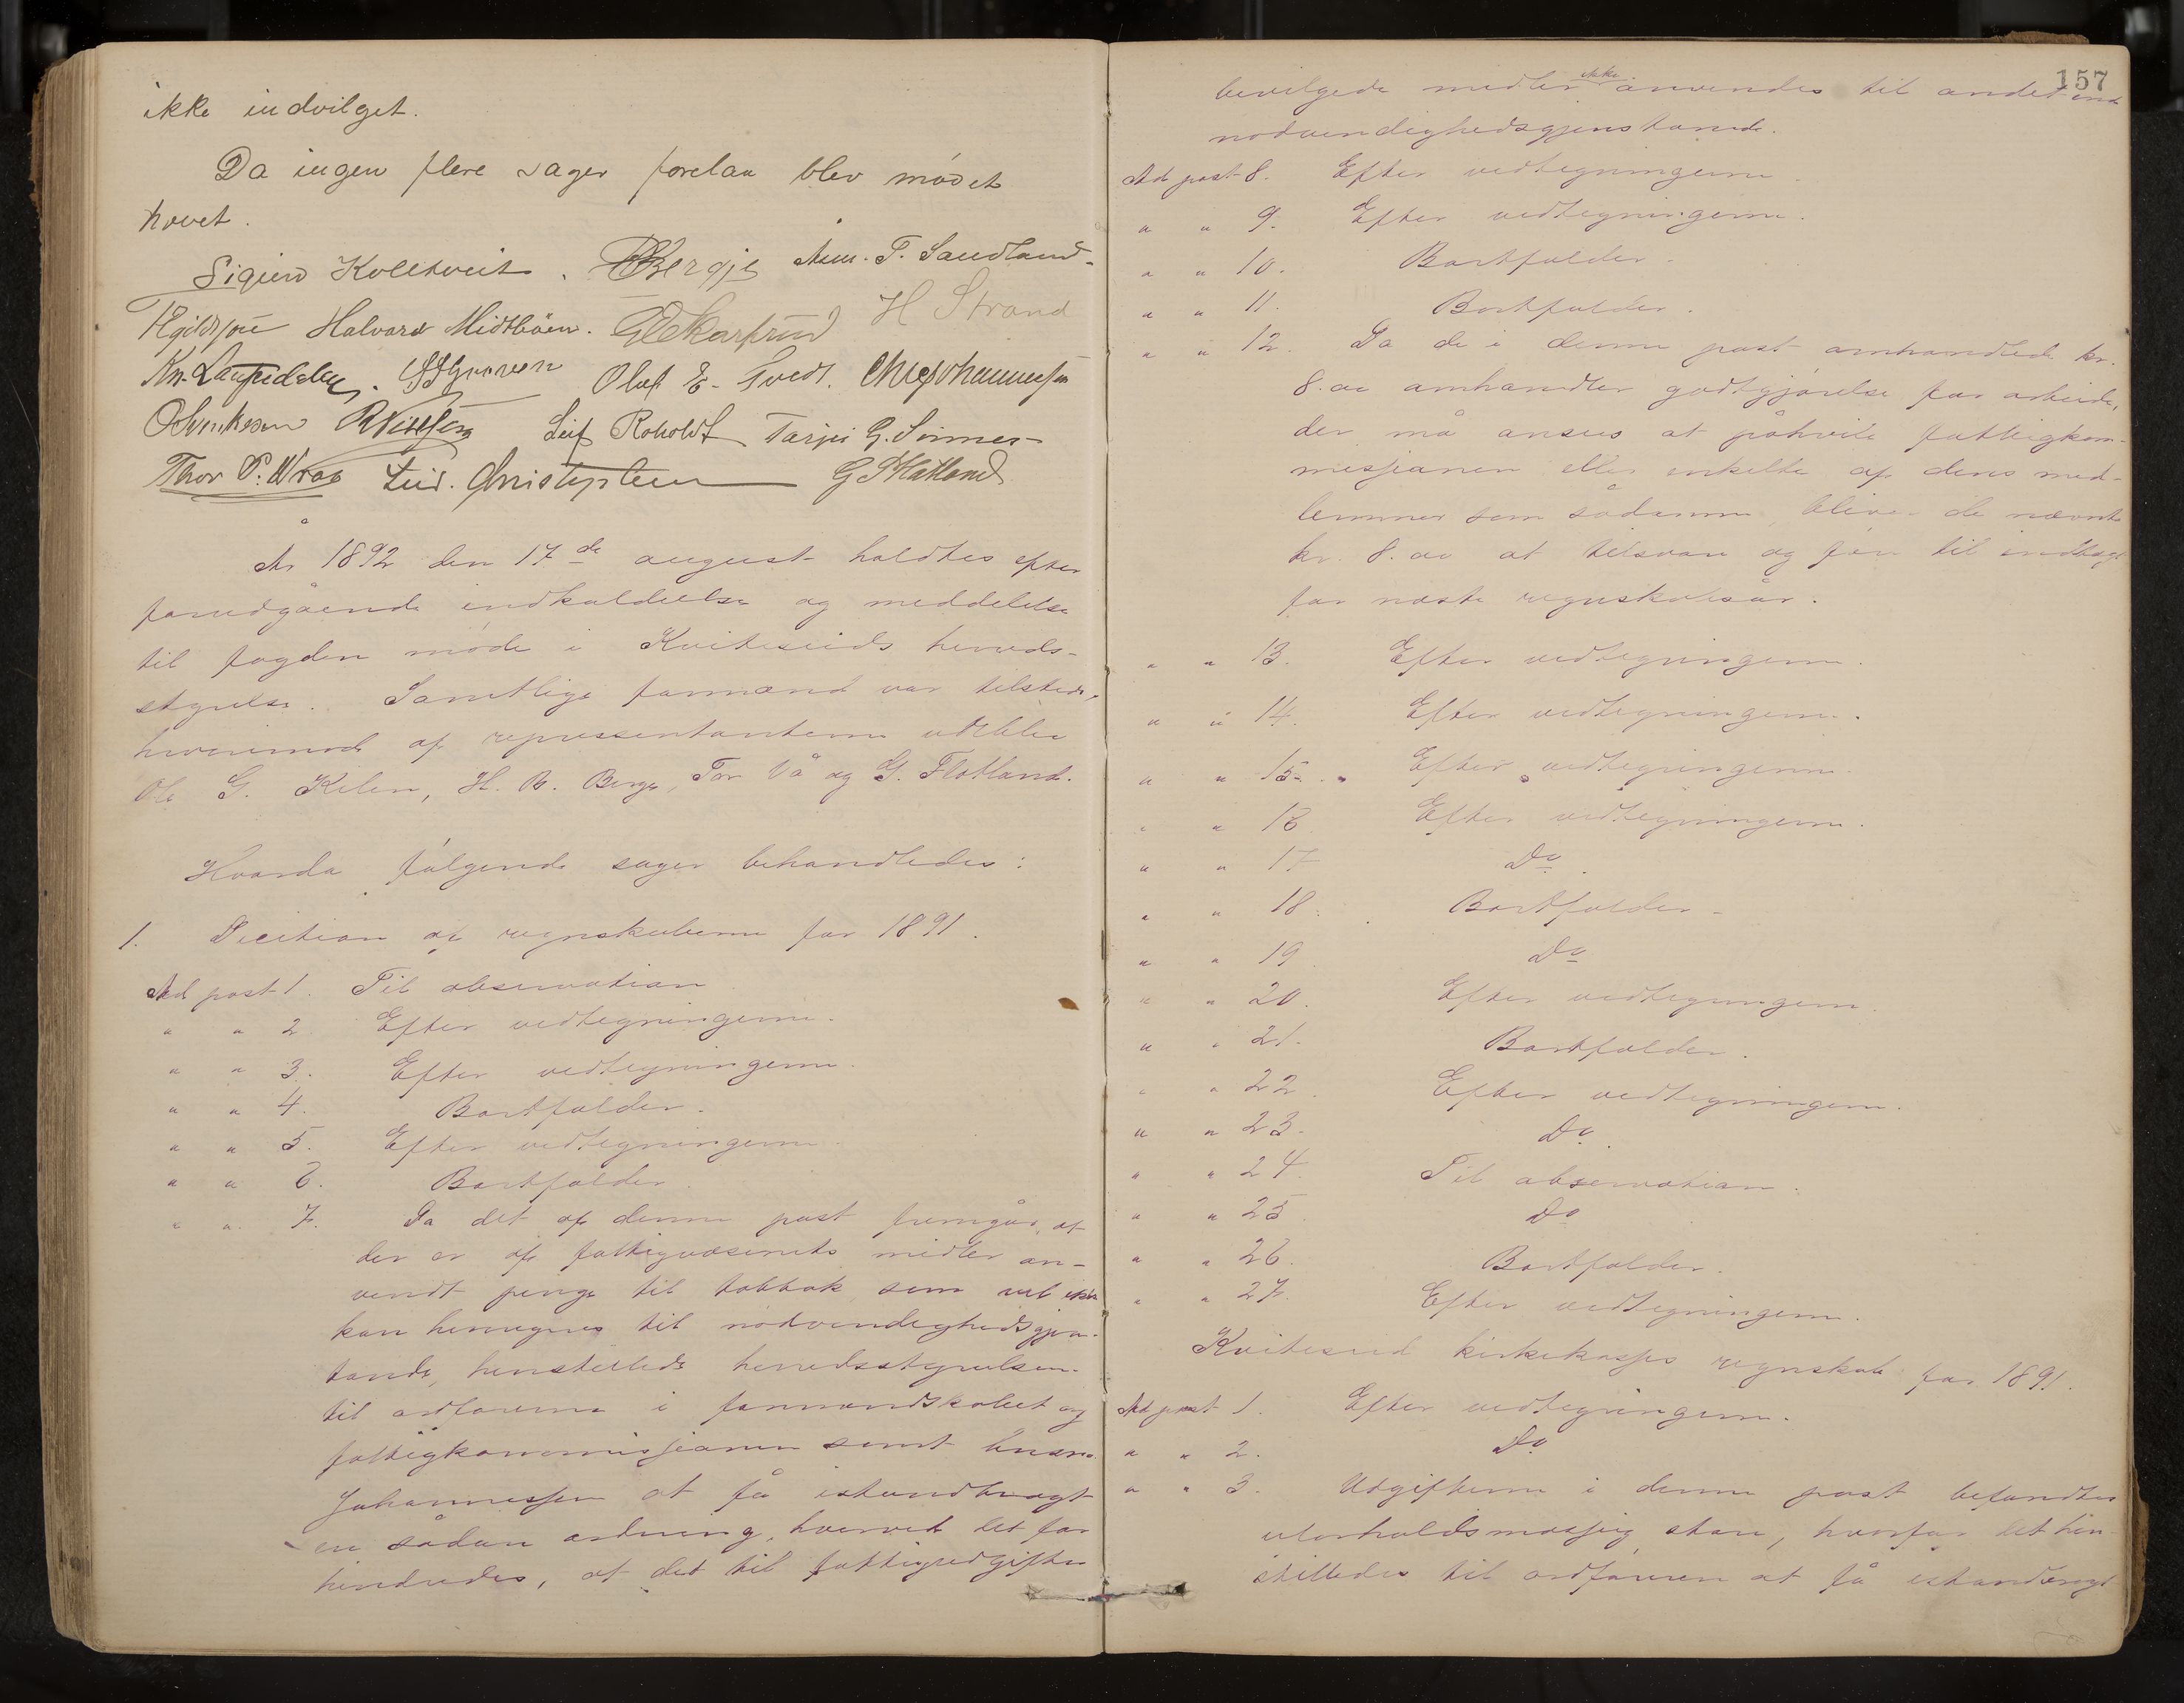 ikke indvilget.
Da ingen flere sager forelaa blev mødet
hævet.
Sigurd Kolltveit. Bergje Aam. T. Sandland
Halvard Midtbøen. H Strand
Kn. Olaf E. Tvedt.
Leif Roholdt Tarjei G.
Thor P. Wraa Lud. Christophersen G Flatland
År 1892 den 17de august holdtes efter
forudgående indkaldelse og meddelelse
til fogden møde i Kviteseids herreds-
styrelse. Samtlige formænd var tilstede,
hvorimod af repræsentanterne udeblev
Ole G. Kilen, H. B. Berge, Tor Vå og G. Flatland.
Hvorda følgende sager behandledes:
1. Decition af regnskaberne for 1891.
Ad post 1. Til observation
" " 2 Efter vedtegningerne.
" " 3. Efter vedtegningerne.
" " 4. Bortfalder.
" " 5. Efter vedtegningerne
" " 6. Bortfalder.
" " 7. Da det af denne post fremgår, at
der er af fattigvæsenets midler an-
vendt penge til tobbak, som vel ikke
kan henregnes til nødvendighedsgjen-
tande, henstillede herredsstyrelsen
til ordførerne i formandskabet og
fattigkommissjonen samt
Johannessen at få istandbragt
en sådan ordning, hvorved det for
hindredes, at det til fattigudgifter
157
bevilgede midler ikke anvendes til andet end
nødvendighedsgjenstande.
Ad post 8. Efter vedtegningerne.
" " 9. Efter vedtegningerne.
" " 10. Bortfalder.
" " 11. Bortfalder.
" " 12. Da de i denne post omhandlede kr.
8.00 omhandler godtgjørelse for arbeide,
der må ansees at påhvile fattigkom-
missjonen eller enkelte af dens med-
lemmer som sådanne, bliver de nævnte
kr. 8.00 at tilsvare og føre til indtægt
for næste regnskabsår.
" " 13. Efter vedtegningerne.
" " 14. Efter vedtegningerne.
" " 15. Efter vedtegningerne.
" " 16 Efter vedtegningerne.
" " 17 Do.
" " 18. Bortfalder.
" " 19 Do
" " 20. Efter vedtegningerne.
" " 21. Bortfalder.
" " 22. Efter vedtegningerne.
" " 23. Do.
" " 24. Til observation.
" " 25 Do
" " 26. Bortfalder.
" " 27. Efter vedtegningerne.
Kviteseid kirkekasses regnskab for 1891.
Ad post 1. Efter vedtegningerne.
" " 2. Do
" " 3. Udgifterne i denne post befandtes
uforholdsmæssig store, hvorfor det hen-
stilledes til ordføreren at få istandbragt